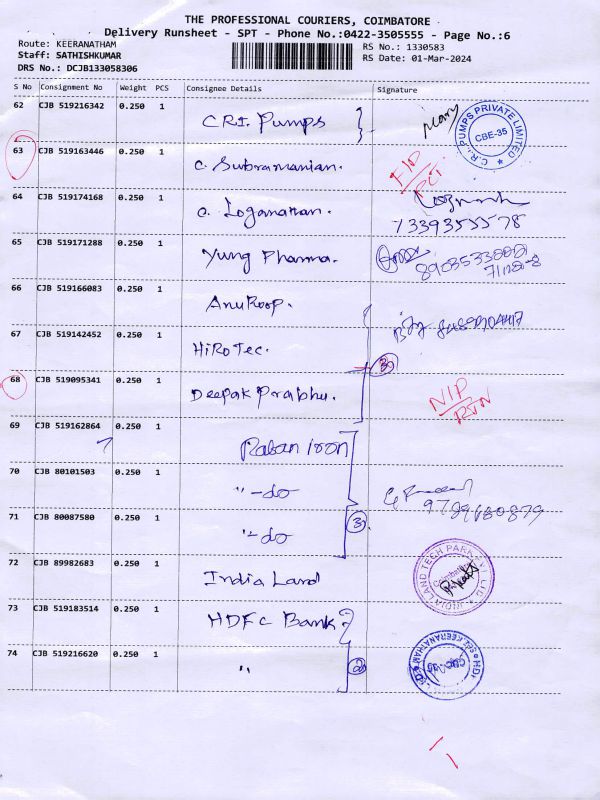 THE PROFESSIONAL COURIERS, COIMBATORE
Delivery Runsheet - SPT - Phone No.:0422-3505555 - Page No.:6
Route: KEERANATHAM
RS No.: 1330583
Staff: SATHISHKUMAR
RS Date: 01-Mar-2024
DRS No.: DCJB133058306
S No Consignment No Weight PCS Consignee Details Signature
62 CJB 519216342 0.250 1 C.R.I. Pumps
C.R.I. PUMPS PRIVATE LIMITED CBE-35
63 CJB 519163446 0.250 1 C. Subramanian.
64 CJB 519174168 0.250 1 O. Loganathan.
7339355578
65 CJB 519171288 0.250 1 Yung Pharma.
66 CJB 519166083 0.250 1 AnuRoop.
67 CJB 519142452 0.250 1 HiRoTec. 3
68 CJB 519095341 0.250 1 Deepak Prabhu. NIP
RTN
69 CJB 519162864 0.250 1 Raban Iron
70 CJB 80101503 0.250 1 "-do
71 CJB 80087580 0.250 1 "-do 3
72 CJB 89982683 0.250 1 India Land
INDIA LAND TECH PARK PVT LTD Coimbatore
73 CJB 519183514 0.250 1 HDFC Bank
74 CJB 519216620 0.250 1 " 2